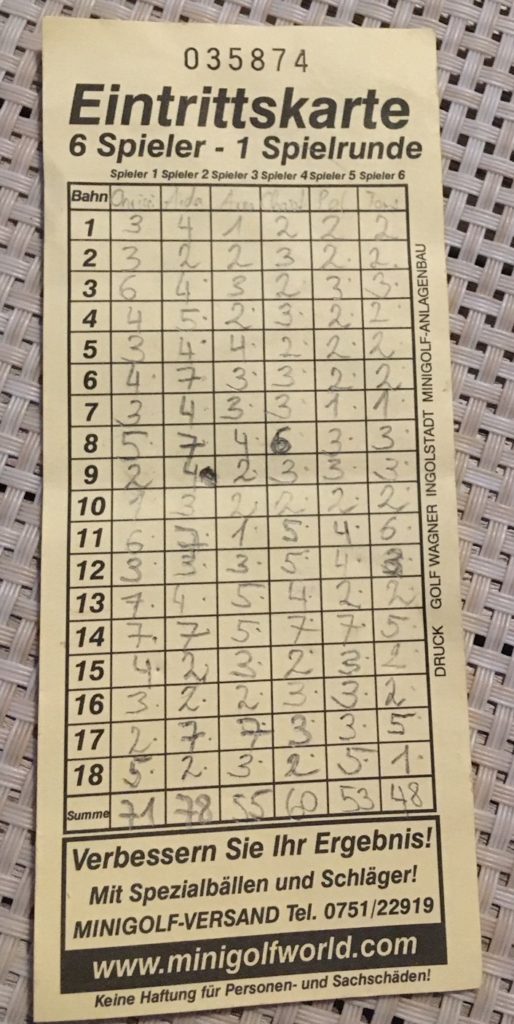 035874
Eintrittskarte
6 Spieler - 1 Spielrunde
Spieler 1 Spieler 2 Spieler 3 Spieler 4 Spieler 5 Spieler 6
Bahn
1 3 4 1 2 2 2
2 3 2 2 3 2 2
3 6 4 3 2 3 3
4 4 5 2 3 2 2
5 3 4 4 2 2 2
6 4 7 3 3 2 2
7 3 4 3 3 1 1
8 5 7 4 6 3 3
9 2 4 2 3 3 3
10 3 2 2 2 2
11 6 7 1 5 4 6
12 3 3 3 5 4 3
13 7 4 5 4 2 2
14 7 7 5 7 7 5
15 4 2 3 2 3 2
16 3 2 2 3 3 2
17 2 7 7 3 3 5
18 5 2 3 2 5 1
Summe 71 78 55 60 53 48
DRUCK GOLF WAGNER INGOLSTADT MINIGOLF-ANLAGENBAU
Verbessern Sie Ihr Ergebnis!
Mit Spezialbällen und Schläger!
MINIGOLF-VERSAND Tel. 0751/22919
www.minigolfworld.com
Keine Haftung für Personen- und Sachschäden!